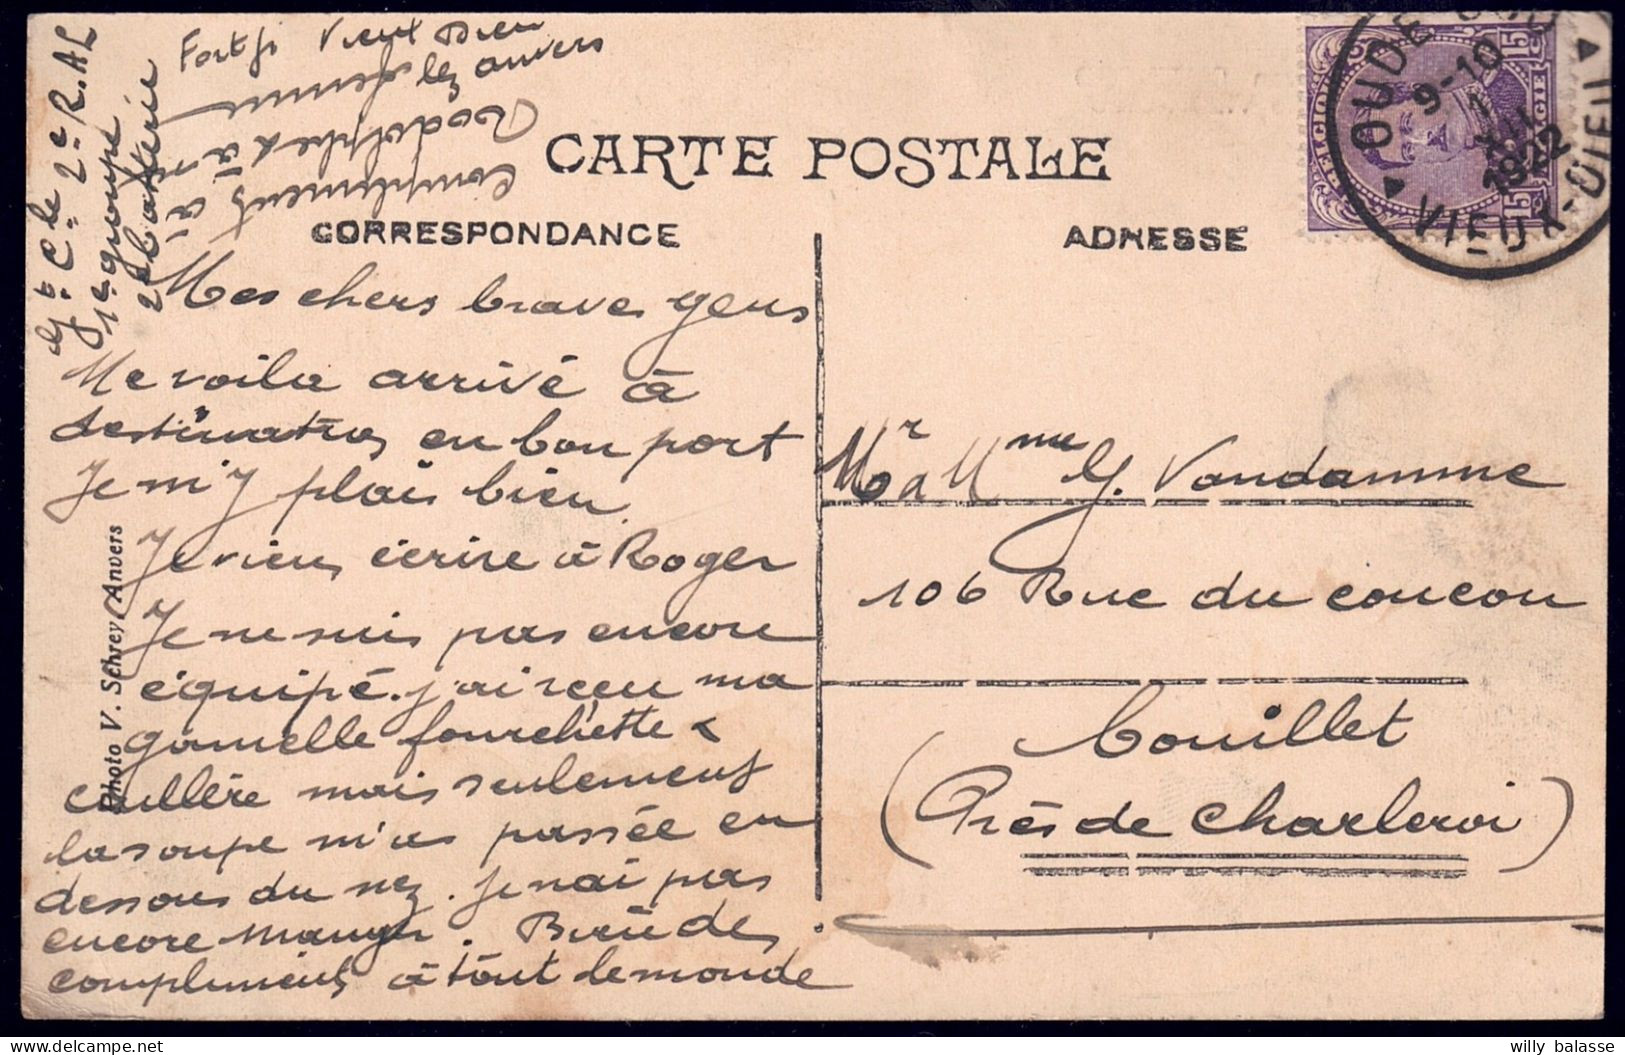 Vieux Dieu
lez anvers
2e R. AL
1e groupe
Compliments à
CARTE POSTALE
CORRESPONDANCE
ADRESSE
Mes chers braves gens
Me voila arrivé à
destination en bon port
Je m'y plais bien
Je viens écrire à Roger
Je ne suis pas encore
équipé. j'ai reçu ma
gamelle fourchette &
cuillère mais seulement
la soupe m'as passée en
dessous du nez. Je n'ai pas
encore manger. Bien des
compliments à tout le monde
Photo V. Schrey Anvers
Mr & Mme G. Vandamme
106 Rue du coucou
Couillet
(Près de Charleroi)
OUDE GOD
9-10
1
XII
1922
VIEUX-DIEU
BELGIQUE
BELGIE
15 15
willy balasse